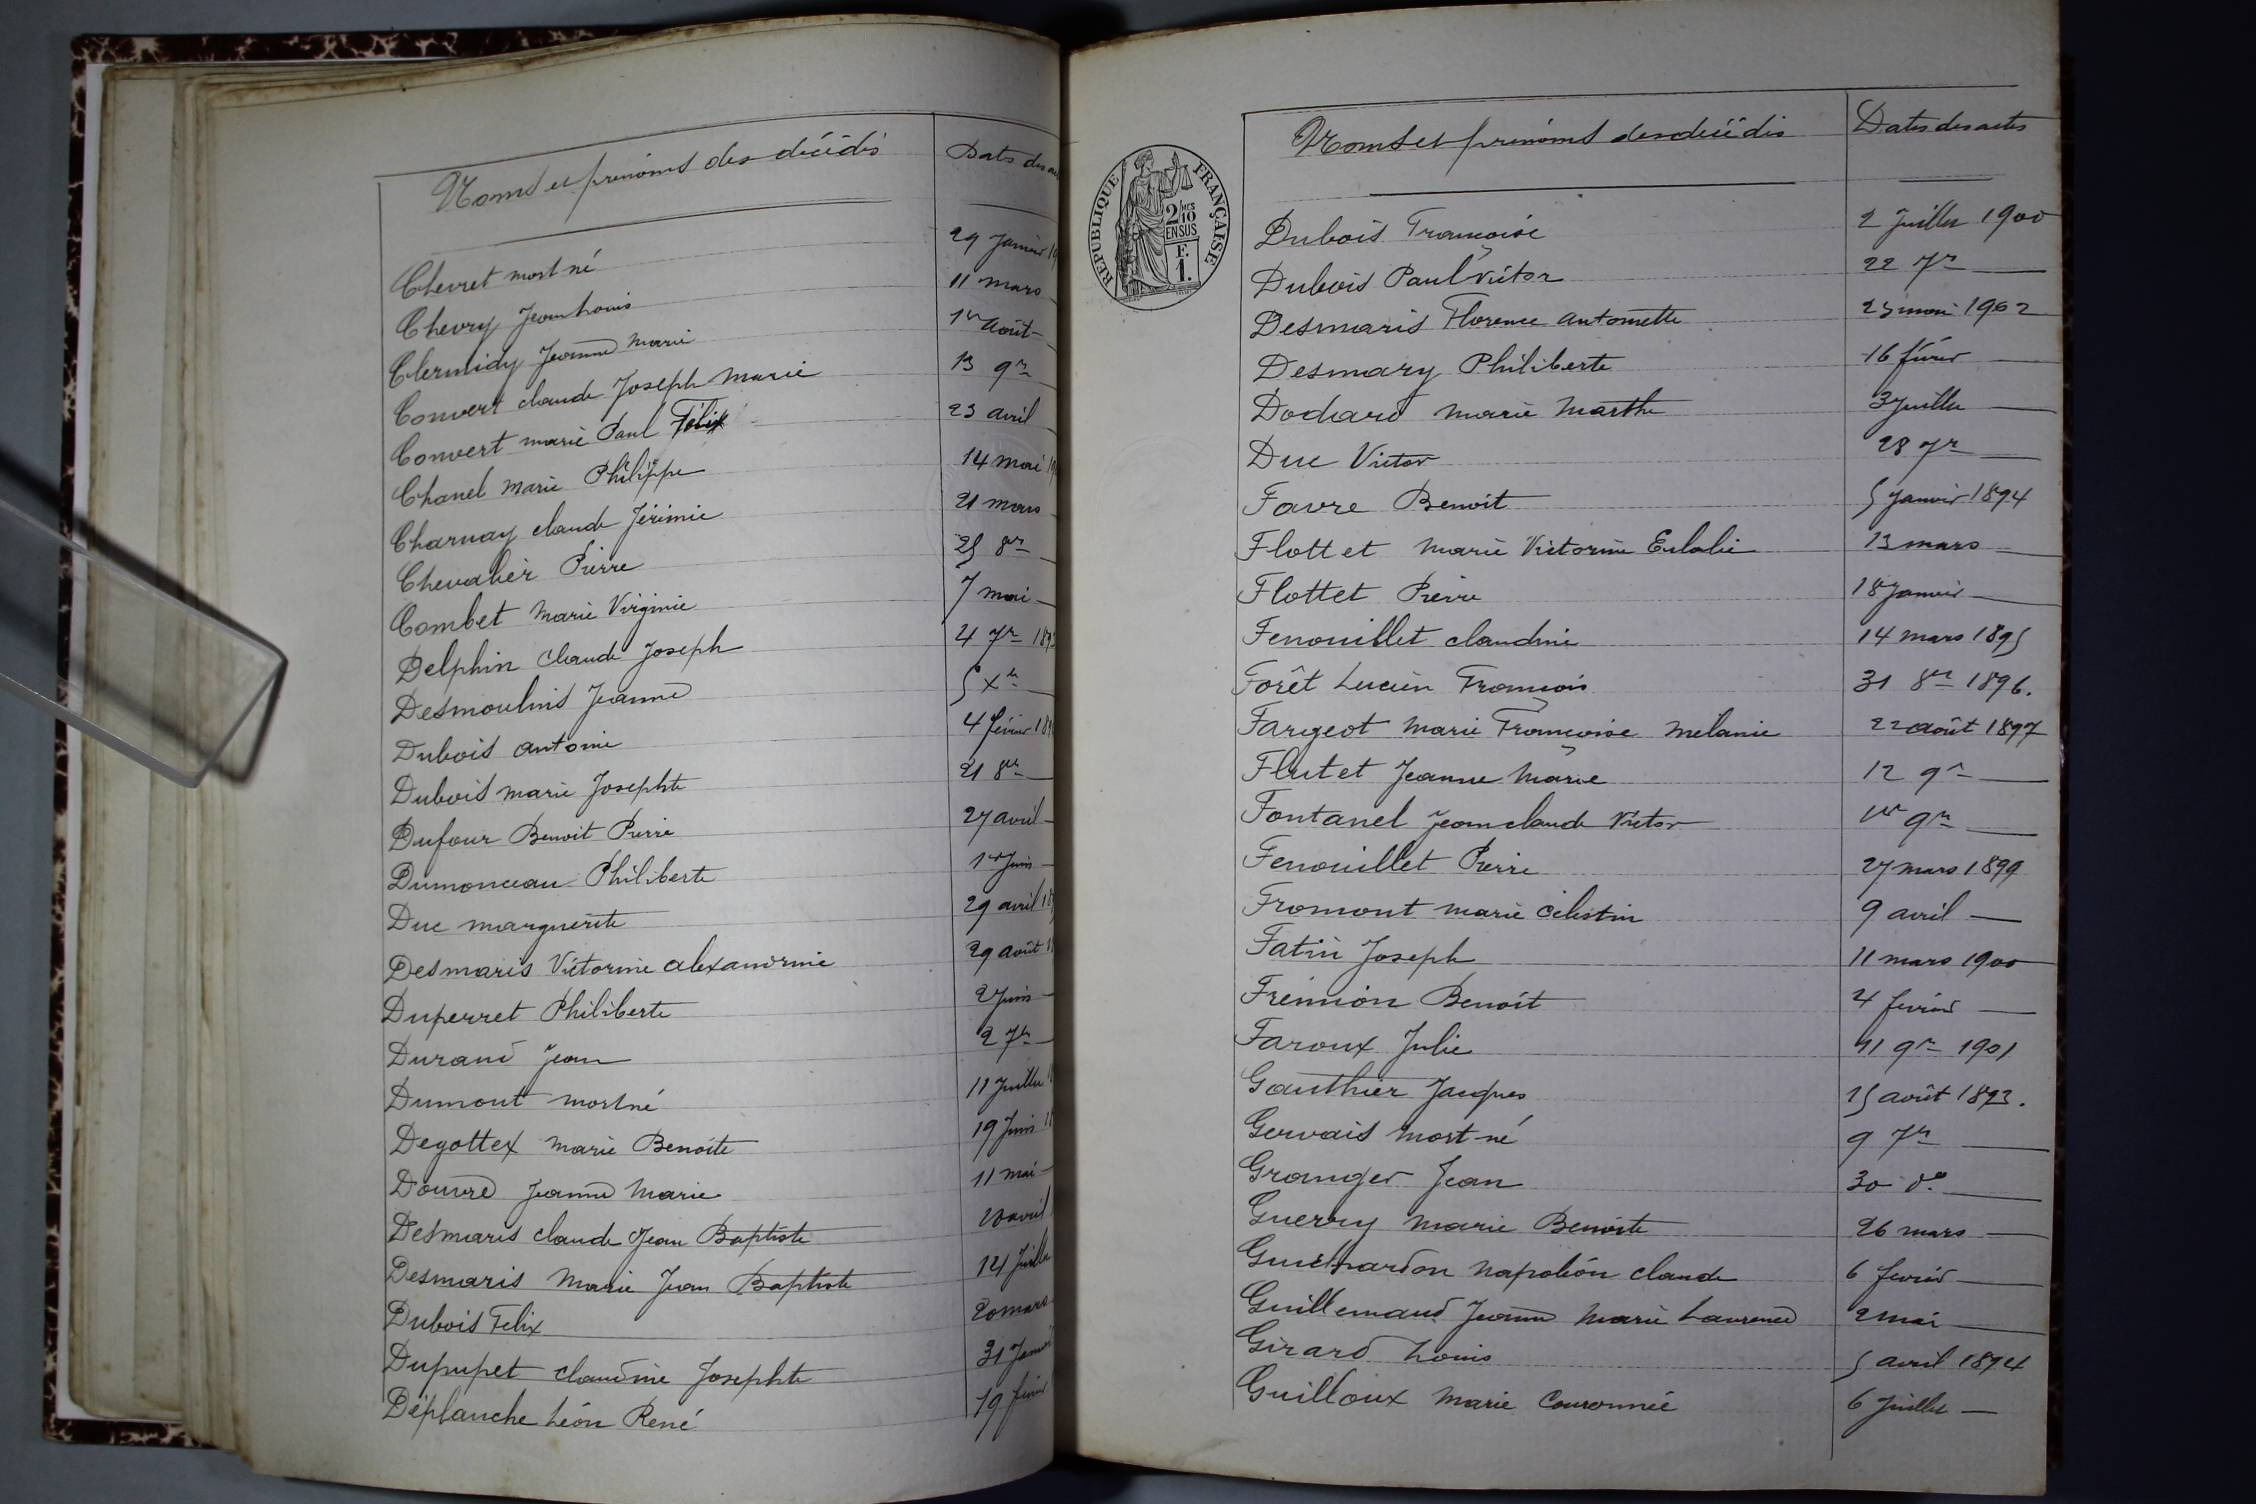 Noms et prénoms des décédés
Dates des
Chevret mort né
29 Janvier 19
Chevry Jean Louis
11 mars
Clermidy Jeanne Marie
1er Août
Convert claude Joseph Marie
13 9re
Convert marie Paul Félix
23 avril
Chanel Marie Philippe
14 mai 19
Charnay claude Jérémie
21 mars
Chevalier Pierre
25 8re
Combet Marie Virginie
7 mai
Delphin Claude Joseph
4 7re 189
Desmoulins Jeanne
5 Xre
Dubois antoine
4 février 189
Dubois marie Josephte
21 8re
Dufour Benoit Pierre
27 avril
Dumonceau Philiberte
1er Juin
Duc marguerite
29 avril 18
Desmaris Victorine alexandrine
29 août 1
Duperret Philiberte
2 Juin
Durand Jean
2 7re
Dumont mort né
11 Juillet 1
Degottex marie Benoite
19 Juin 18
Douvre Jeanne Marie
11 mai
Desmaris claude Jean Baptiste
20 avril
Desmaris Marie Jean Baptiste
14 Juillet
Dubois Felix
20 mars
Dupupet claudine Josephte
31 Janvi
Déplanche Léon René
19 février
RÉPUBLIQUE FRANÇAISE
2/10 MES
EN SUS
F.
1.
Noms et prénoms des décédés
Dates des actes
Dubois Françoise
2 Juillet 1900
Dubois Paul Victor
22 7re
Desmaris Florence antoinette
25 mai 1902
Desmary Philiberte
16 février
Dodard marie Marthe
3 Juillet
Duc Victor
28 7re
Favre Benoit
5 Janvier 1894
Flottet Marie Victorine Eulalie
13 mars
Flottet Pierre
18 Janvier
Fenouillet claudine
14 mars 1895
Forêt Lucien François
31 8re 1896.
Fargeot Marie Françoise Mélanie
22 août 1897
Flutet Jeanne Marie
12 9re
Fontanel Jean claude Victor
1er 9re
Fenouillet Pierre
27 mars 1899
Fromont marie célestin
9 avril
Fatin Joseph
11 mars 1900
Frémion Benoit
4 février
Faroux Julie
11 9re 1901
Gauthier Jacques
25 août 1893.
Gervais mort-né
9 7re
Granger Jean
30 do
Guerry marie Benoite
26 mars
Guichardon Napoléon claude
6 février
Guillemaud Jeanne Marie Laurence
2 mai
Girard Louis
5 avril 1894
Guilloux Marie Couronnée
6 Juillet